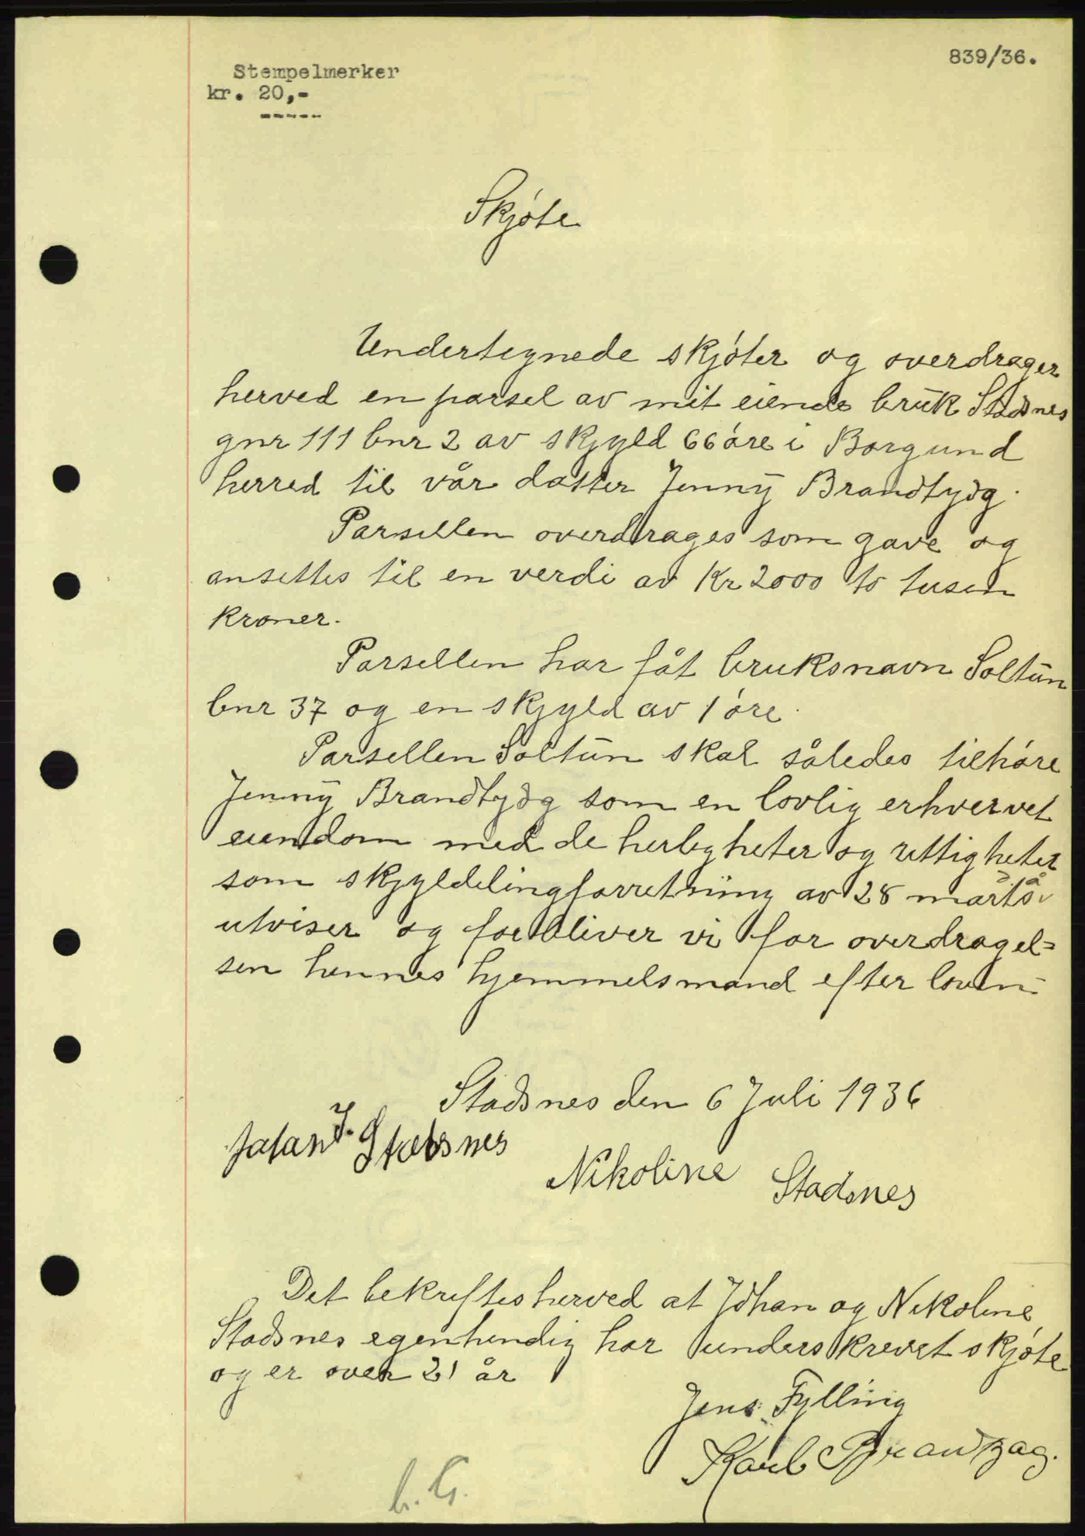 839/36.
Stempelmerker
kr. 20,-
-----
Skjøte
Undertegnede skjøter og overdrager
herved en parsel av mit eiende bruk Stadsnes
gnr 111 bnr 2 av skjyld 66 øre i Borgund
herred til vår datter Jenny Brandtydg.
Parsellen overdrages som gave og
ansettes til en verdi av Kr 2000 to tusen
kroner.
Parsellen har fåt bruksnavn Soltun
bnr 37 og en skjyld av 1 øre.
Parsellen Soltun skal således tilhøre
Jenny Brandtydg som en lovlig erhvervet
eiendom med de herligheter og rettigheter
som skjyldelingforretning av 28 marts
utviser og forbliver vi for overdragel=
sen hennes hjemmelsmand efter loven.
Stadsnes den 6 Juli 1936
Johan J. Stadsnes
Nikoline Stadsnes
Det bekreftes herved at Johan og Nikoline
Stadsnes egenhendig har underskrevet skjøte
og er over 21 år
Jens Fylling
Karl Brandtzæg.
b. G.